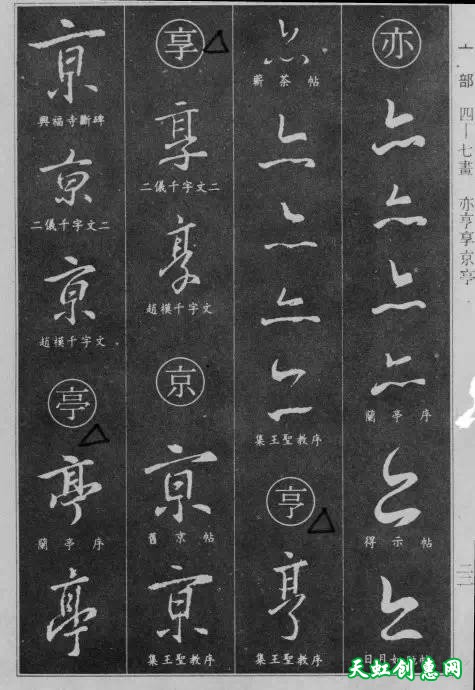 亠部 四—七畫 亦亨享京亭
亦
亦
亦
亦
亦
蘭亭序
亦
得示帖
亦
亦
蘄茶帖
亦
亦
亦
亦
集王聖教序
亨
亨
集王聖教序
享
享
二儀千字文二
享
趙模千字文
京
京
舊京帖
京
集王聖教序
京
興福寺斷碑
京
二儀千字文二
京
趙模千字文
亭
亭
蘭亭序
亭
天虹创意网